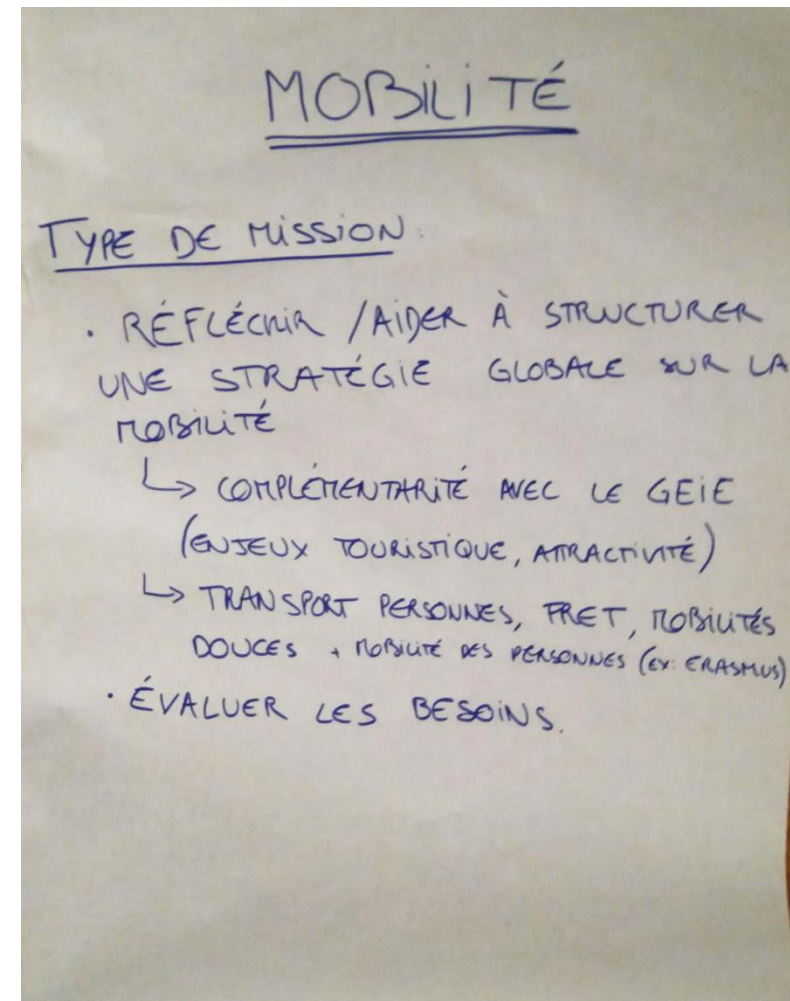 MOBILITÉ
TYPE DE MISSION:
· RÉFLÉCHIR / AIDER À STRUCTURER
UNE STRATÉGIE GLOBALE SUR LA
MOBILITÉ
↳ COMPLÉMENTARITÉ AVEC LE GEIE
(ENJEUX TOURISTIQUE, ATTRACTIVITÉ)
↳ TRANSPORT PERSONNES, FRET, MOBILITÉS
DOUCES + MOBILITÉ DES PERSONNES (EX: ERASMUS)
· ÉVALUER LES BESOINS.